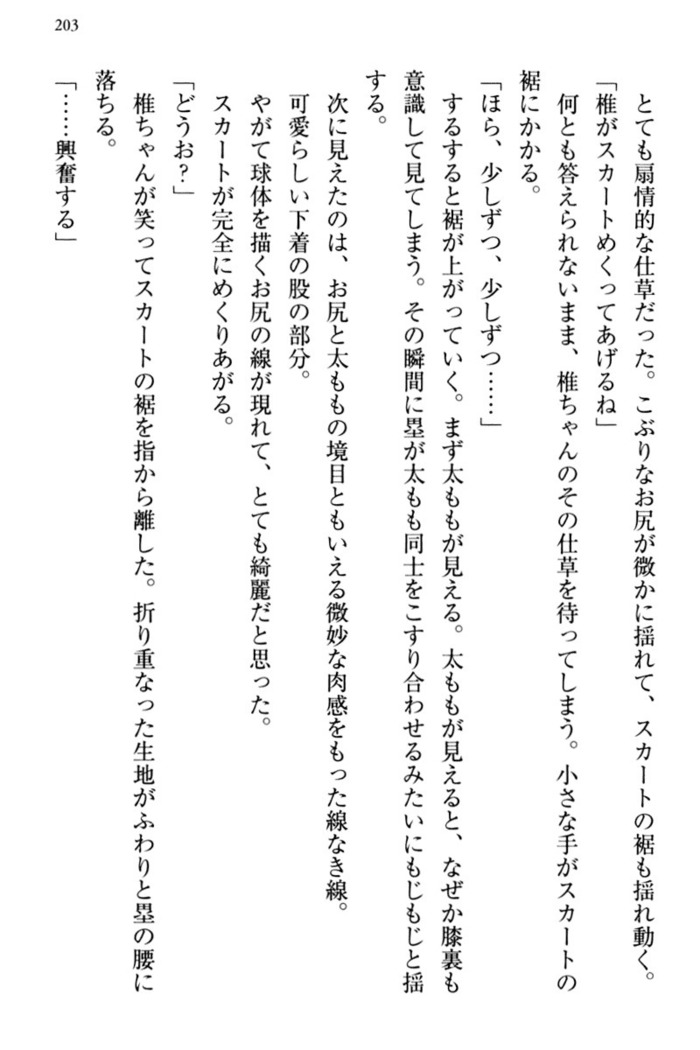 203
とても扇情的な仕草だった。こぶりなお尻が微かに揺れて、スカートの裾も揺れ動く。
「椎がスカートめくってあげるね」
何とも答えられないまま、椎ちゃんのその仕草を待ってしまう。小さな手がスカートの
裾にかかる。
「ほら、少しずつ、少しずつ……」
するすると裾が上がっていく。まず太ももが見える。太ももが見えると、なぜか膝裏も
意識して見てしまう。その瞬間に塁が太もも同士をこすり合わせるみたいにもじもじと揺
する。
次に見えたのは、お尻と太ももの境目ともいえる微妙な肉感をもった線なき線。
可愛らしい下着の股の部分。
やがて球体を描くお尻の線が現れて、とても綺麗だと思った。
スカートが完全にめくりあがる。
「どうお？」
椎ちゃんが笑ってスカートの裾を指から離した。折り重なった生地がふわりと塁の腰に
落ちる。
「……興奮する」